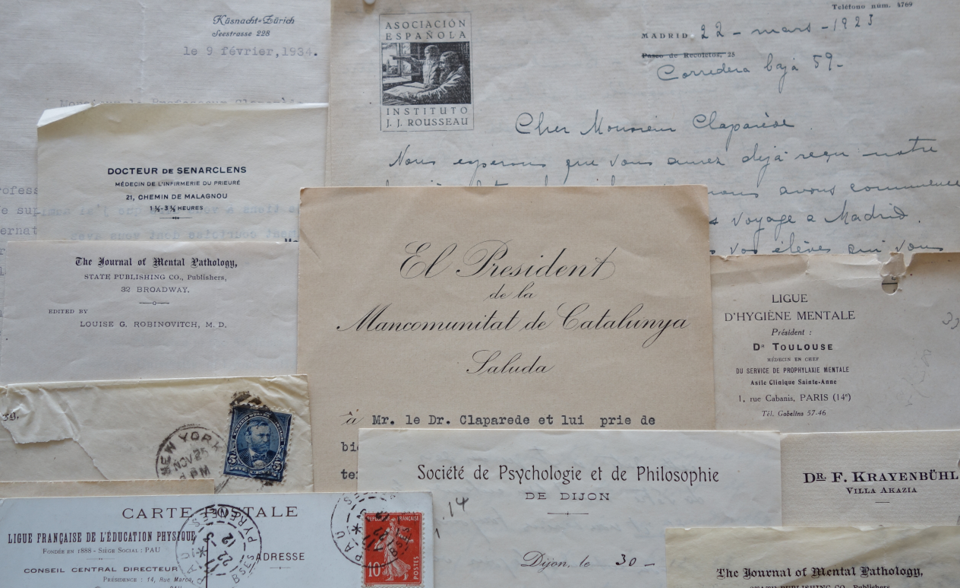 Küsnacht-Zürich
Seestrasse 228
le 9 février, 1934.
ASOCIACIÓN
ESPAÑOLA
INSTITUTO
J. J. ROUSSEAU
Teléfono núm. 4769
MADRID, 22 - mars - 1923
Paseo de Recoletos, 25
Corredera baja 59-
Cher Monsieur Claparède
Nous esperons que vous aurez déjà reçu notre
nous avons commencé
voyage a Madrid.
vos élèves qui vous
DOCTEUR DE SENARCLENS
MÉDECIN DE L'INFIRMERIE DU PRIEURÉ
21, CHEMIN DE MALAGNOU
1 ¼-3 ¼ HEURES
The Journal of Mental Pathology,
STATE PUBLISHING CO., Publishers,
32 BROADWAY.
EDITED BY
LOUISE G. ROBINOVITCH, M. D.
El President
de la
Mancomunitat de Catalunya
Saluda
à Mr. le Dr. Claparede et lui prie de
LIGUE
D'HYGIÈNE MENTALE
Président :
Dr TOULOUSE
MÉDECIN EN CHEF
DU SERVICE DE PROPHYLAXIE MENTALE
Asile Clinique Sainte-Anne
1, rue Cabanis, PARIS (14e)
Tél. Gobelins 57-46
NEW YORK
NOV 25
Société de Psychologie et de Philosophie
DE DIJON
Dijon, le 30 -
DR. F. KRAYENBÜHL
VILLA AKAZIA
CARTE POSTALE
LIGUE FRANÇAISE DE L'ÉDUCATION PHYSIQUE
FONDÉE EN 1888 - SIÈGE SOCIAL : PAU
CONSEIL CENTRAL DIRECTEUR
PRÉSIDENCE : 14, Rue Marca,
ADRESSE
PAU
10
.14
The Journal of Mental Pathology,
STATE PUBLISHING CO., Publishers